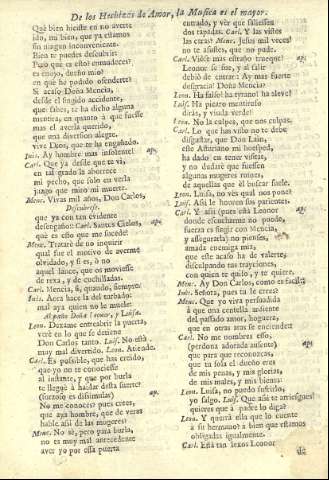 De los Hechizos de Amor, la Musica es el mayor.
Qué bien hiciste en no averte
ido, no bien, que ya estamos
sin ningun inconveniente.
Bien te puedes descubrir:
Pero què es esto? enmudeces?
es enojo, dueño mio?
en què he podido ofenderte?
Si acaso Doña Mencia?
desde el susgido accidente,
que, sabes, te ha dicho alguna
mentira, en quanto à que fuesse
mas el averla querido,
que una diversion alegre,
vive Dios, que te ha engañado.
Inès. Ay hombre mas insolente! ap.
Carl. Que ya desde que te vì,
en tal grado la aborrece
mi pecho, que solo en verla
juzgo que miro mi muerte.
Menc. Vivas mil años, Don Carlos,
Descubrese.
que ya con tan evidente
desengaño: Carl. Santos Cielos, ap.
què es esto que me sucede!
Menc. Trataré de no inquirir
qual fue el motivo de averme
olvidado, y si es, ò no
aquel lance, que os moviesse
de rexa, y de cuchilladas.
Carl. Mencia, si, quando, siempre:
Inès. Aora hace la del turbado:
mal aya quien no le muele!
Al paño Doña Leonor, y Luisa.
Leon. Dexame entreabrir la puerta,
verè en lo que se detiene
Don Carlos tanto. Luis. No està
muy mal divertido. Leon. Atiende.
Carl. Es possible, que has creido,
que yo no te conociesse
al instante, y que por burla
te lleguè à hablar desta suerte?
(turbose es disimular) ap.
No me conoces? pues crees,
que aya hombre, que de veras
hable assi de las mugeres?
Menc. No sè, pero para burla,
no es muy mal antecedente
aver yo por essa puerta
entrado, y vèr que saliessen
dos tapadas. Carl. Y las vistes
las caras? Menc. Jesus mil veces!
no te assustes, que no pude.
Carl. Viòse mas estraño trueque! ap.
Leonor se fue, y al salir
debiò de entrar: Ay mas fuerte
desgracia! Doña Mencia?
Leon. Ha falso! ha tyrano! ha aleve!
Luis. Ha picaro mentiroso
diràs, y viuda verde!
Leon. No la culpes, que nos culpas.
Carl. Lo que has visto no te debe
disgustar, que Don Lain,
este Asturiano mi huesped,
ha dado en tener visitas,
y no dudarè que fuessen
algunas mugeres ruines,
de aquellas que èl buscar suele.
Leon. Luisa, no vès qual nos pone?
Luis. Assi le honren sus parientes.
Carl. Y assi (pues està Leonor ap.
donde escucharme no puede,
fuerza es fingir con Mencia,
y assegurarla) no pienses,
amada enemiga mia,
que este acaso ha de valerte,
disculpando tus trayciones,
con quien te quiso, y te quiere.
Menc. Ay Don Carlos, como es facil?
Inès. Señora, pues tu le creas?
Menc. Que yo viva persuadida
à que una centella ardiente
del passado amor, hoguera,
que en otras aras se enciende?
Carl. No me nombres esso,
(perdona adorada ausente) ap.
que para que reconozcas,
que tu sola el dueño eres
de mis penas, y mis glorias,
de mis males, y mis bienes:
Leon. Luisa, no puedo sufrirlo,
yo salgo. Luis. Què assi te arriesgues!
quieres que à padre lo diga?
Leon. Y querrà ella que lo cuente
à su hermano? à bien que estamos
obligadas igualmente.
Carl. Està tan lexos Leonor
de